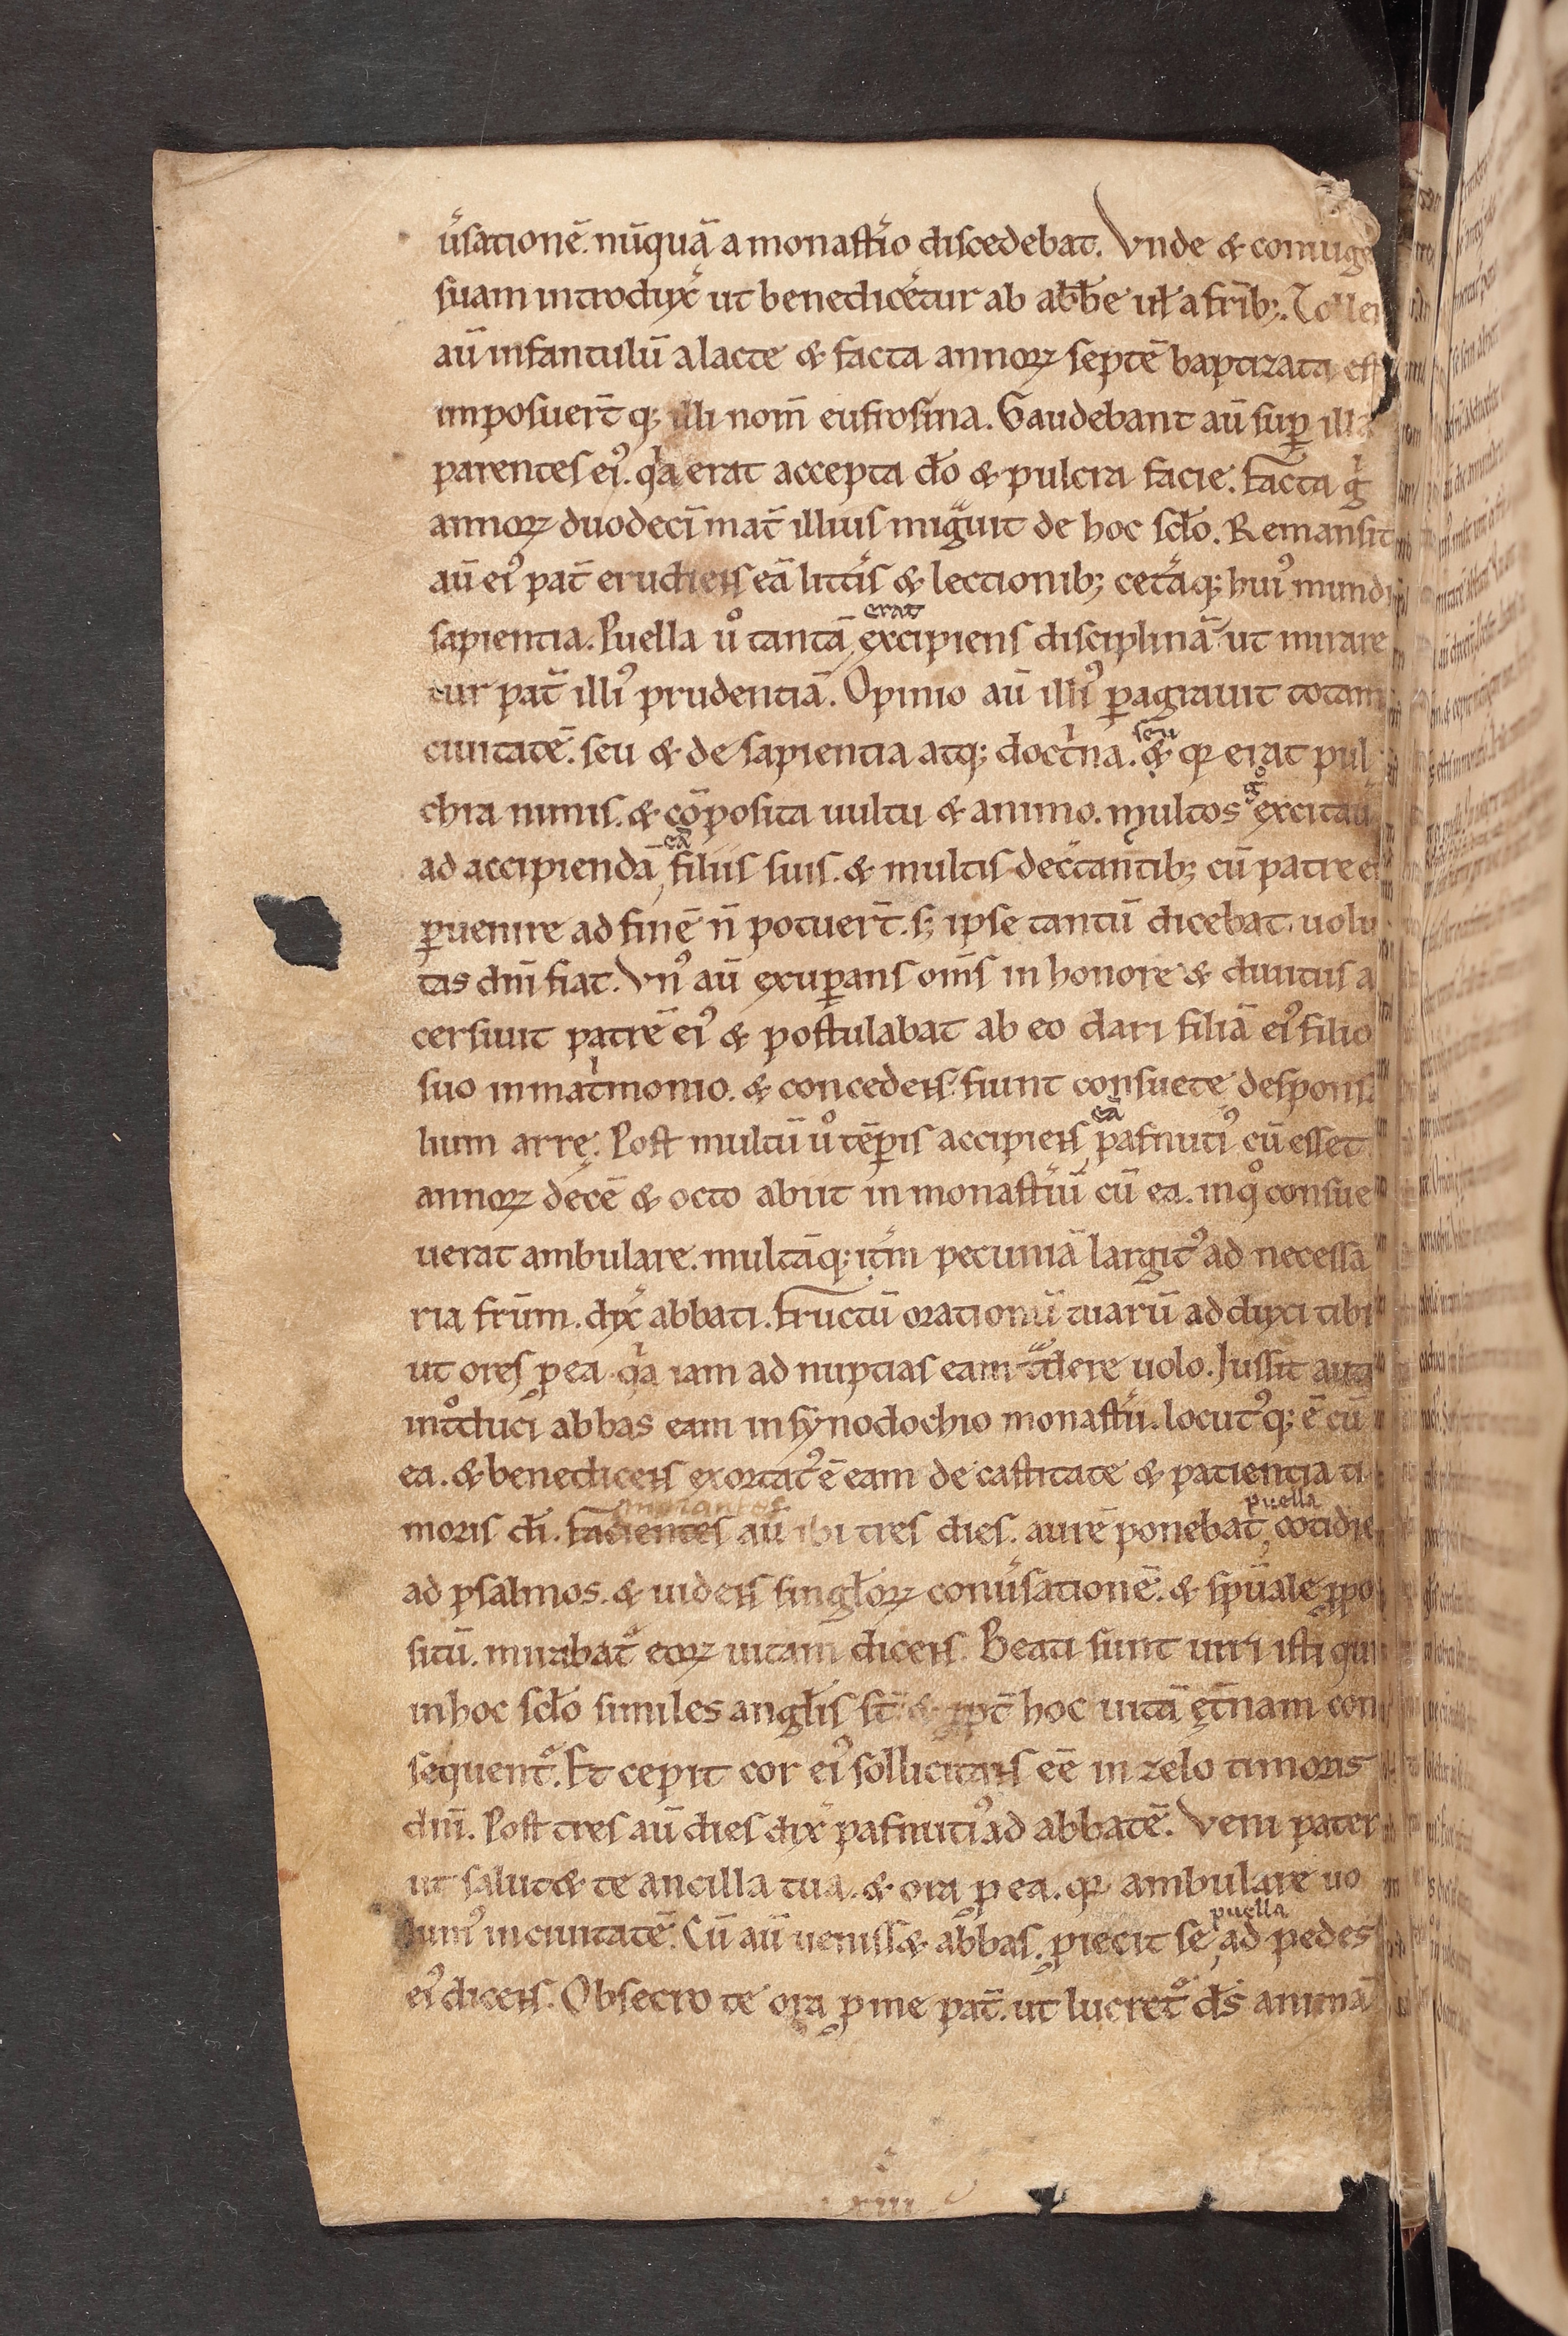 ũsationẽ. nũquã a monastio discedebat. Vnde & coniuge
suam introdux̃ ut benedicẽtur ab abb̃e uł a frib;. Toller
aũ infantulũ a lacte & facta annoꝝ septẽ baptizata est
imposuer̃t q; illi nom̃ eufrosina. Gaudebant aũ sup̱ illa
parentes ei᾿. qͥa erat accepta do & pulcra facie. Facta gͥ
annoꝝ duodecĩ mat̃ illius migͣuit de hoc scło. Remansit
aũ ei᾿ pat̃ erudiens eã litt̃is & lectionib; cet̃aq; hui᾿ mundi
erat
sapientia. Puella uͦ tantã excipiens disciplinã ut mirare
tur pat̃ illi᾿ prudentiã. Opinio aũ illi᾿ ꝑagrauit totam
seu
ciuitatẽ. seu & de sapientia atq; doctͥna. & qꝛ erat pul
qͦ
chra nimis. & cõposita uultu & animo. multos excitau
eã
ad accipiendã filiis suis. & multis dec̃tantib; cũ patre ei
ꝑuenire ad finẽ ñ potuer̃t. s; ipse tantũ dicebat. uolu
tas dñi fiat. Vn᾿ aũ exuꝑans om̃s in honore & diuitiis a
cersiuit patrẽ ei᾿ & postulabat ab eo dari filiã ei᾿ filio
suo in matͥmonio. & concedens. fiunt consuete desponsa
eã
lium arrę. Post multũ uͦ tẽꝑis accipiens pafnuti᾿ cũ esset
annoꝝ decẽ & octo abiit in monastiũ cũ ea. inqͦ consue
uerat ambulare. multãq; itm̃ pecuniã largit᾿ ad necessa
ria frũm. dix̃ abbati. Fructũ orationũ tuarũ adduxi tibi
ut ores ꝓ ea qͥa iam ad nuptias eam tͣdere uolo. Jussit aut
intͦduci abbas eam in synodochio monastii. locut᾿q; ẽ cũ
ea. & benedicens exortat᾿ ẽ eam de castitate & patientia ti
morantes puella
moris di. Facientes aũ ibi tres dies. aurẽ ponebat cotidie
ad psalmos. & uidens singłoꝝ conũsationẽ. & spũale ꝓpo
sitũ. mirabat᷑ eoꝝ uitam dicens. Beati sunt uiri isti qui
in hoc scło similes angłis st̃ & ꝓpt̃ hoc uitã ęt̃nam con
sequent᷑. Et cepit cor ei᾿ sollicitans eẽ in zelo timoris
dñi. Post tres aũ dies dix̃ pafnuti᾿ ad abbatẽ. Veni pater
ut salut& te ancilla tua. & ora ꝓ ea. qꝛ ambulare uo
puella
lum᾿ in ciuitatẽ. Cũ aũ ueniss& abbas. ꝓiecit se ad pedes
ei᾿ dicens. Obsecro te ora ꝓ me pat̃. ut lucret᷑ ds̃ animã
xiii